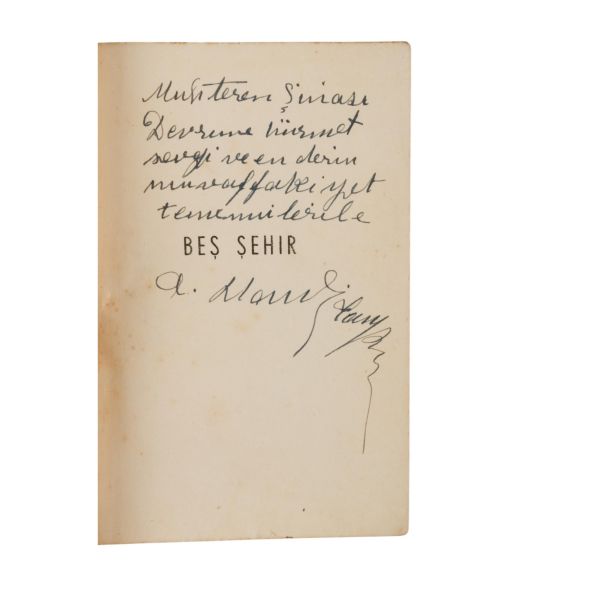 Muhterem Şinasi
Devrime hürmet
sevgi ve en derin
muvaffakiyet
temennilerile
BEŞ ŞEHIR
A. Hamdi
Tanpınar